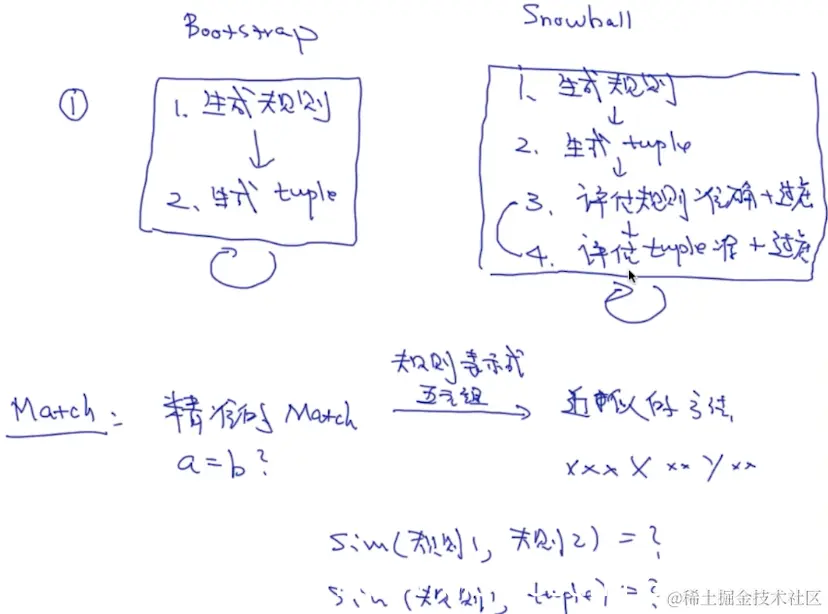 Bootstrap
Snowball
①
1、生成规则
2、生成 tuple
1、生成规则
2、生成 tuple
3、评估规则准确+过滤
4、评估tuple准+过滤
Match：
精准的 Match
a=b？
规则表示成
五元组
近似的方法
xxx X xx Y xx
Sim(规则1, 规则2) = ?
Sim(规则1, tuple) = ?
@稀土掘金技术社区